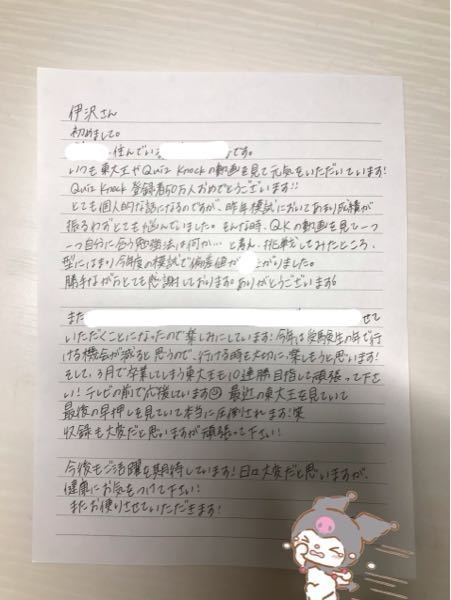 伊沢さん
初めまして。
住んでいる です。
いつも東大王やQuiz Knockの動画を見て元気をいただいています!
Quiz Knock 登録者50万人おめでとうございます!!
とても個人的な話になるのですが、昨年模試においてあまり成績が
振るわずとても悩んでいました。そんな時、QKの動画を見て一つ
一つ自分に合う勉強法は何か…と考え、挑戦してみたところ、
型にはまり今年度の模試で偏差値が 上がりました。
勝手ながらとても感謝しております。ありがとうございます!
また させて
いただくことになったので楽しみにしています!今年は受験生の年で行
ける機会が減ると思うので、行ける時を大切に、楽しもうと思います!
そして、3月で卒業してしまう東大王も10連勝目指して頑張って下さ
い!テレビの前で応援しています 最近の東大王を見ていて
最後の早押しを見ていて本当に圧倒されます!笑
収録も大変だと思いますが頑張って下さい!
今後もご活躍を期待しています!日々大変だと思いますが、
健康にお気をつけて下さい!
またお便りさせていただきます!